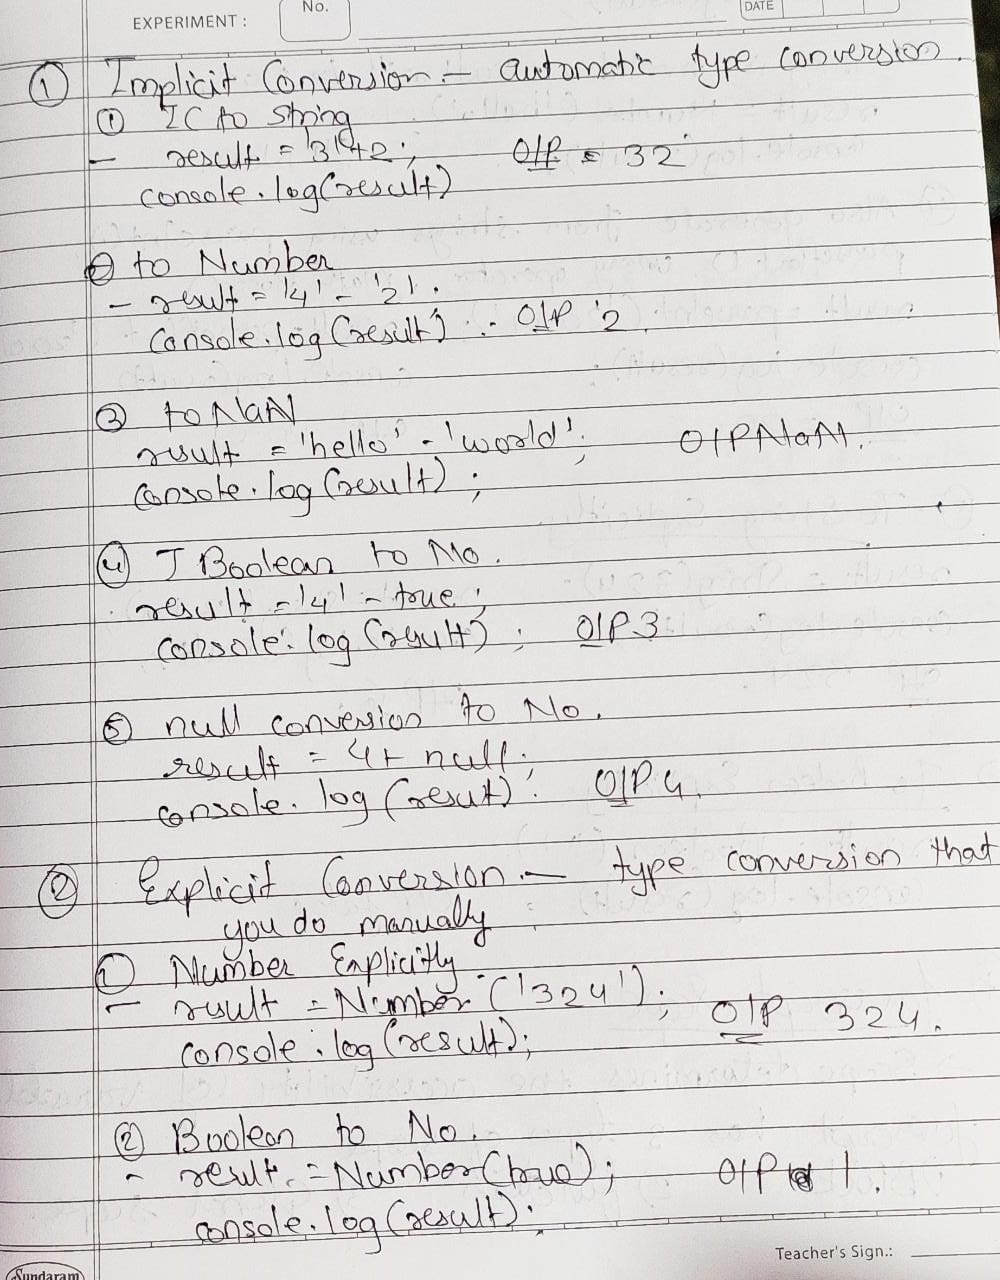 EXPERIMENT :
No.
DATE
① Implicit Conversion - automatic type conversion.
① IC to string
- result = '3'+2; O/P = 32
console.log(result)
② to Number
- result = '4' - '2';
Console.log(result) :- O/P 2.
③ to NaN
result = 'hello' - 'world'; O/P NaN.
Console.log(result);
④ I Boolean to No.
result = '4' - true;
console.log(result); O/P 3
⑤ null conversion to No.
result = 4+ null;
console.log(resut). O/P 4.
② Explicit Conversion. - type conversion that
you do manually
① Number Explicitly
- result = Number('324'); O/P 324.
console.log(result);
② Boolean to No.
- result. = Number(true); O/P 1.
console.log(result);
Teacher's Sign.:
Sundaram